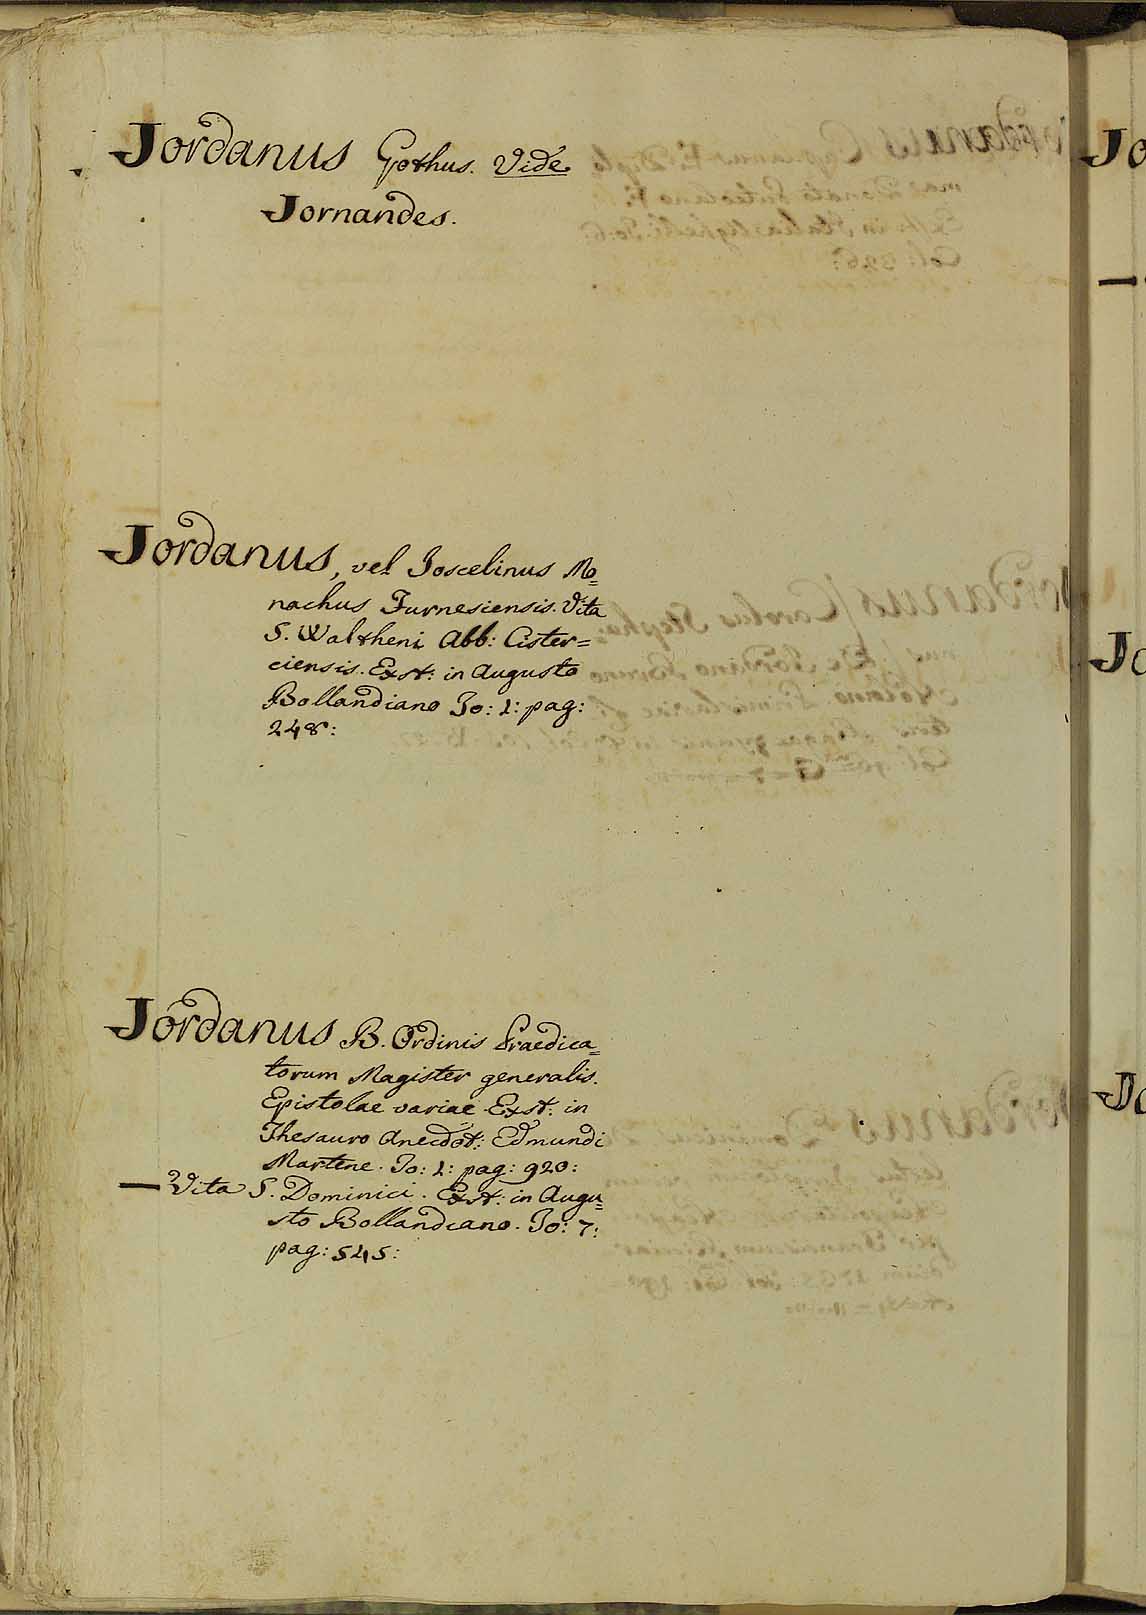 Jordanus Gothus. Vide
Jornandes.
Jordanus, vel Joscelinus Mo=
nachus Furnesiensis. Vita
S. Waltheni Abb: Cister=
ciensis. Exst: in Augusto
Bollandiano To: 1: pag:
248:
Jordanus B. Ordinis Praedica=
torum Magister generalis.
Epistolae variae Exst: in
Thesauro Anecdot: Edmundi
Martene. To: 1: pag: 920:
— Vita S. Dominici. Exst: in Augu=
sto Bollandiano. To: 7:
pag: 545: